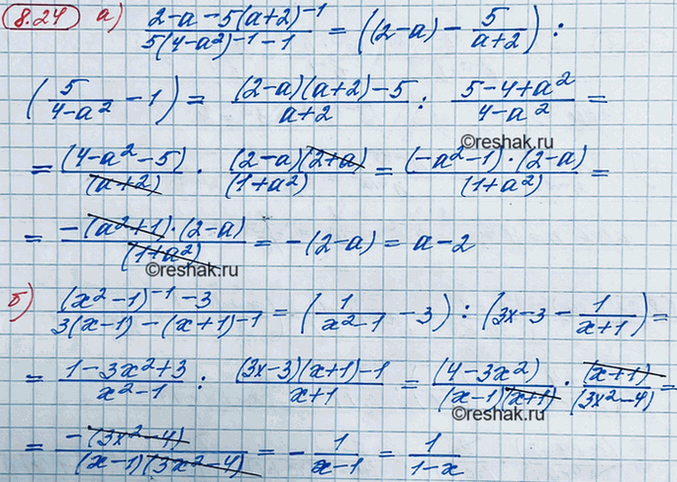 8.24 а) (2-a-5(a+2)^-1)/(5(4-a²)^-1-1) = ((2-a) - 5/(a+2)) :
(5/(4-a²) - 1) = ((2-a)(a+2)-5)/(a+2) : (5-4+a²)/(4-a²) =
©reshak.ru
= (4-a²-5)/(a+2) · (2-a)(2+a)/(1+a²) = (-a²-1)·(2-a)/(1+a²) =
= -(a²+1)·(2-a)/(1+a²) = -(2-a) = a-2
©reshak.ru
б) ((x²-1)^-1-3)/(3(x-1)-(x+1)^-1) = (1/(x²-1) - 3) : (3x-3 - 1/(x+1)) =
= (1-3x²+3)/(x²-1) : ((3x-3)(x+1)-1)/(x+1) = (4-3x²)/((x-1)(x+1)) · (x+1)/(3x²-4) =
©reshak.ru
= -(3x²-4)/((x-1)(3x²-4)) = -1/(x-1) = 1/(1-x)